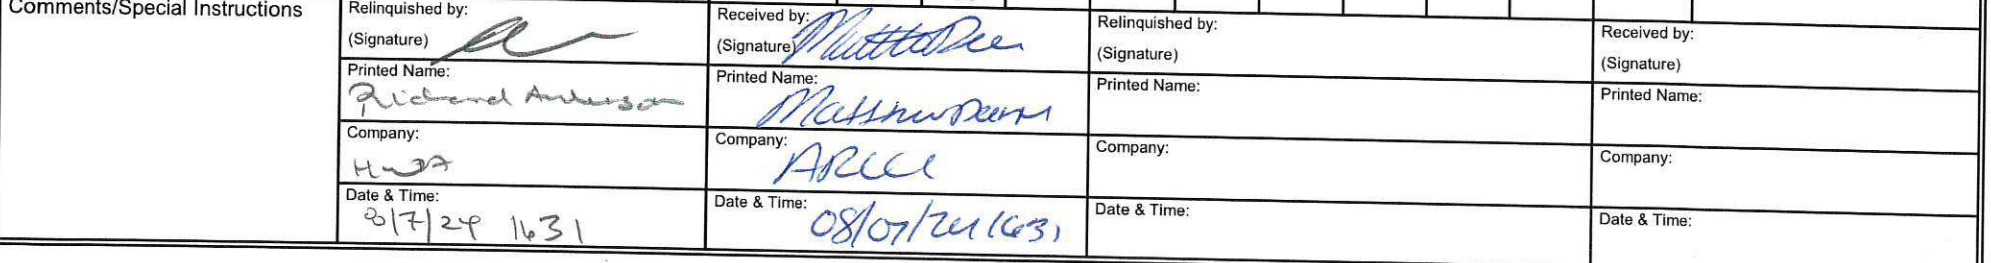 Comments/Special Instructions
Relinquished by:
(Signature)
Printed Name:
Richard Anderson
Company:
Date & Time:
8/7/24 1631
Received by:
(Signature)
Printed Name:
Matthew
Company:
Date & Time:
08/07/24 1631
Relinquished by:
(Signature)
Printed Name:
Company:
Date & Time:
Received by:
(Signature)
Printed Name:
Company:
Date & Time: